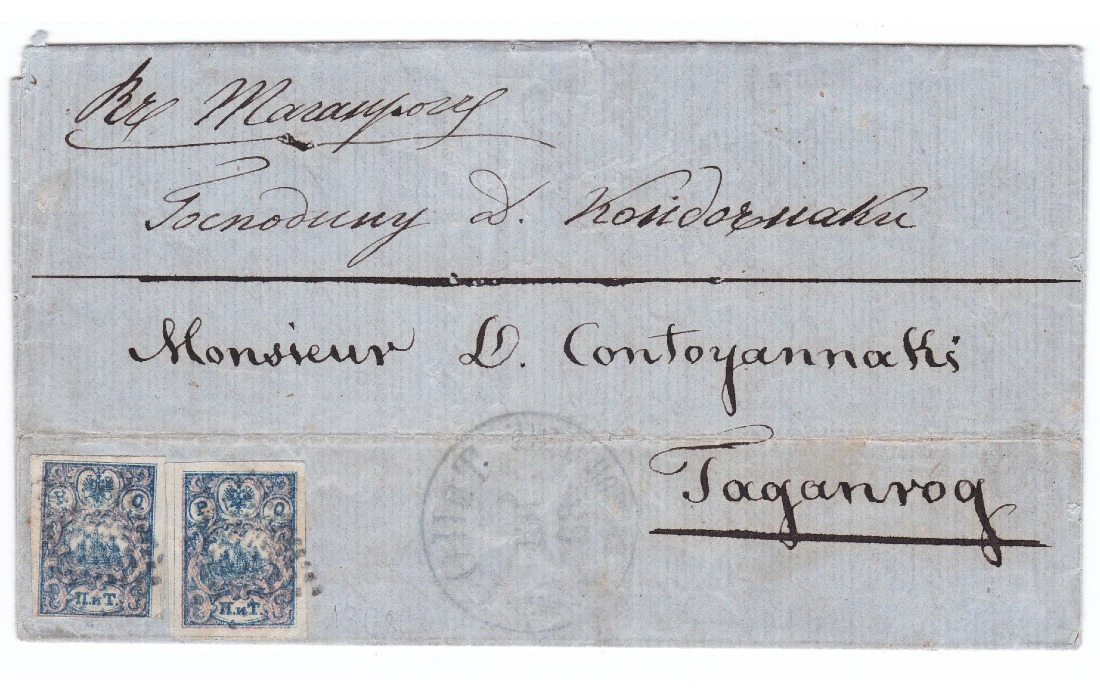 Въ Таганрогъ
Господину Д. Кондоянаки
Monsieur D. Contoyannaki
Taganrog
Р. О.
П.иТ.
Р. О.
П.иТ.